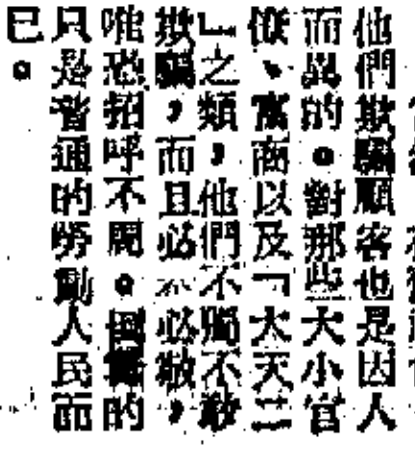 他們欺騙顧客也是因人
而異的。對那些大小官
僚、富商以及「太太二
」之類，他們不獨不敢
欺騙，而且必不必敢，
唯恐招呼不周。因騙的
只是普通的勞動人民而
已。